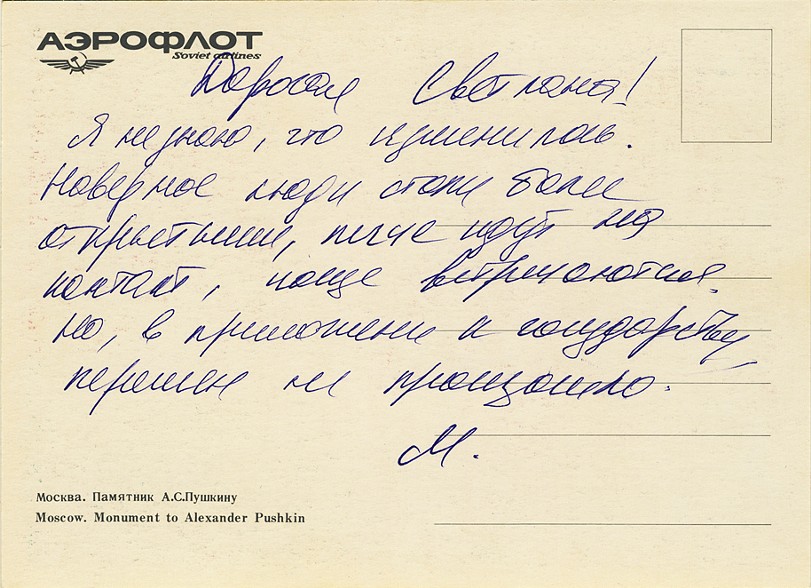 АЭРОФЛОТ
Soviet airlines
Дорогая Светлана!
Я не знаю, что изменилось.
Наверное люди стали более
открытыми, легче идут на
контакт, чаще встречаются.
Но, в приложении к государству,
перемен не произошло.
М.
Москва. Памятник А.С.Пушкину
Moscow. Monument to Alexander Pushkin